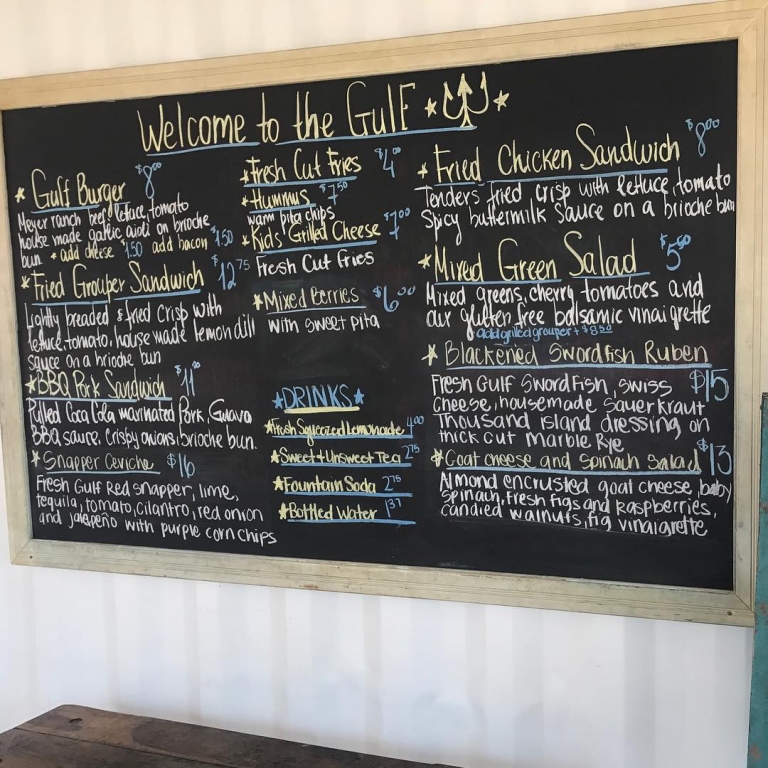 Welcome to the Gulf
Gulf Burger $8.00
Meyer ranch beef, lettuce, tomato
house made garlic aioli on brioche
bun * add cheese $1.50 add bacon $1.50
Fried Grouper Sandwich $12.75
Lightly breaded & fried crisp with
lettuce, tomato, house made lemon dill
sauce on a brioche bun
BBQ Pork Sandwich $11
Pulled Coca Cola marinated Pork, Guava
BBQ sauce, crispy onions, brioche bun.
Snapper Ceviche $16
Fresh Gulf Red snapper, lime,
tequila, tomato, cilantro, red onion
and jalapeño with purple corn chips
Fresh Cut Fries $4.00
Hummus $7.50
warm pita chips
Kids Grilled Cheese $7.00
Fresh Cut Fries
Mixed Berries $6.00
with sweet pita
DRINKS
Fresh Squeezed Lemonade 4.00
Sweet & Unsweet Tea 2.75
Fountain Soda 2.75
Bottled Water 1.37
Fried Chicken Sandwich $8.00
Tenders fried crisp with lettuce, tomato
Spicy buttermilk sauce on a brioche bun
Mixed Green Salad $5.50
Mixed greens, cherry tomatoes and
our gluten free balsamic vinaigrette
add grilled grouper + $8.50
Blackened Swordfish Ruben $15
Fresh Gulf Swordfish, swiss
cheese, housemade Sauerkraut
Thousand island dressing on
thick cut Marble Rye
Goat cheese and spinach Salad $13
Almond encrusted goat cheese, baby
spinach, fresh figs and raspberries,
candied walnuts, fig vinaigrette